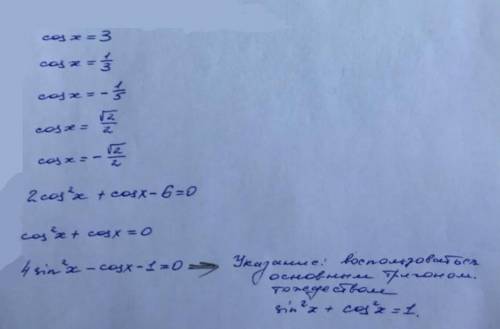 cos x = 3
cos x = 1/3
cos x = - 1/5
cos x = √2/2
cos x = - √2/2
2cos²x + cos x - 6 = 0
cos²x + cos x = 0
4 sin²x - cos x - 1 = 0 ⇒ Указание: воспользоваться
основным тригоном.
тождеством
sin²x + cos²x = 1.